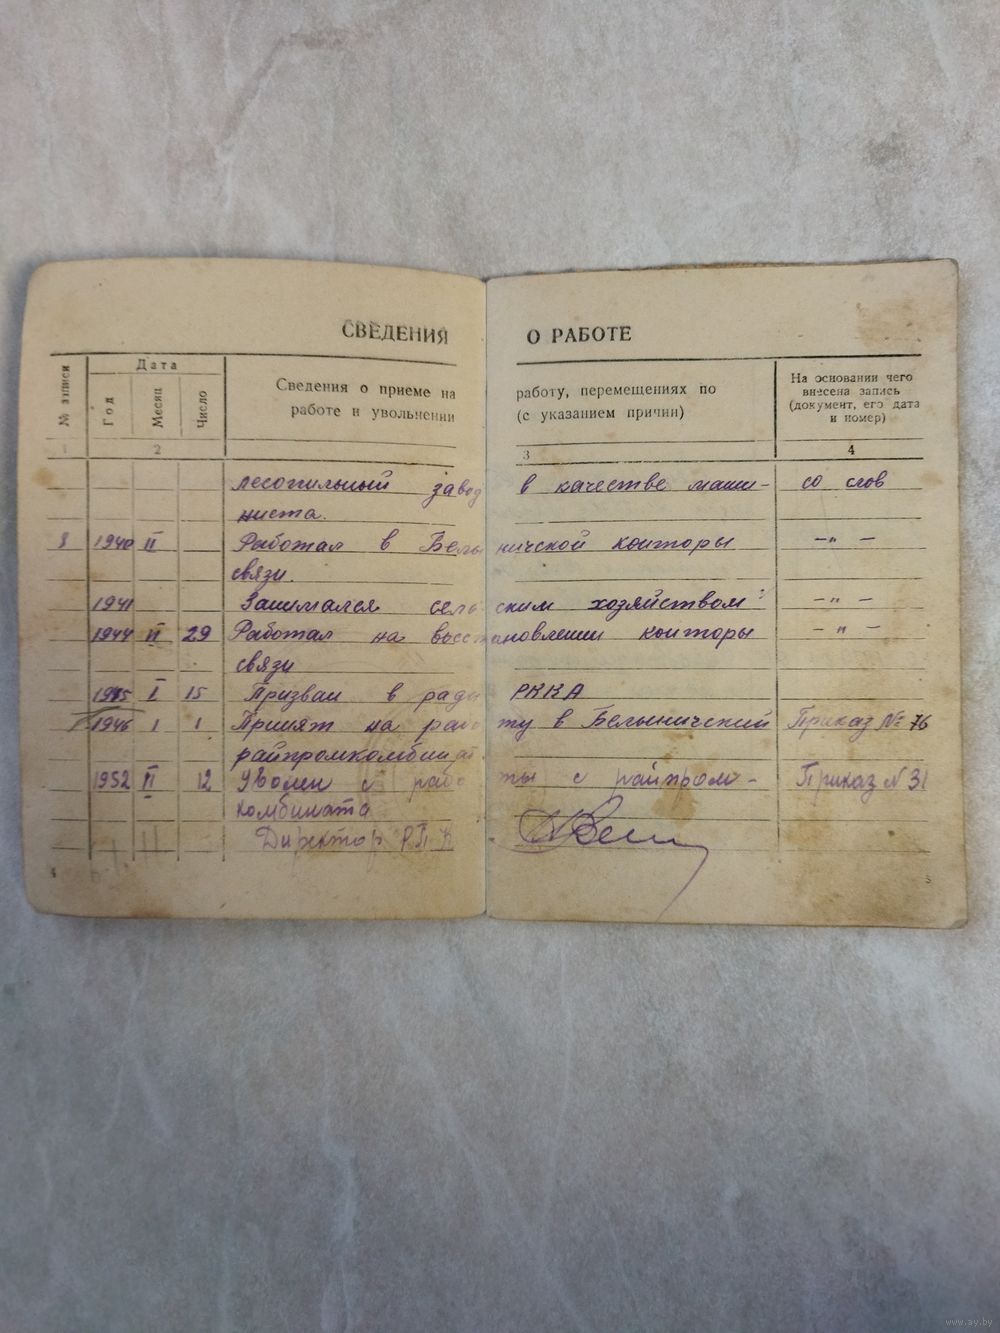 СВЕДЕНИЯ О РАБОТЕ
№ записи
Дата
Год
Месяц
Число
Сведения о приеме на работу, перемещениях по
работе и увольнении (с указанием причин)
На основании чего
внесена запись
(документ, его дата
и номер)
1 2 3 4
лесопильный завод в качестве маши- со слов
ниста.
8 1940 II Работал в Белыничской конторы —"—
связи.
1941 Занимался сельским хозяйством —"—
1944 II 29 Работал на восстановлении конторы —"—
связи
1945 I 15 Призван в ряды РККА
1946 I 1 Принят на работу в Белыничский Приказ № 76
райпромкомбинат.
1952 II 12 Уволен с работы с райпром- Приказ № 31
комбината
Директор РПК
4 5
www.ay.by